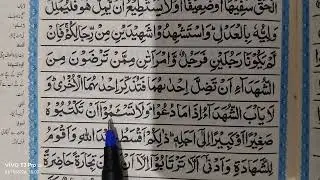 الْحَقُّ سَفِيْهًا اَوْ ضَعِيْفًا اَوْ لَا يَسْتَطِيْعُ اَنْ يُّمِلَّ هُوَ فَلْيُمْلِلْ
وَلِيُّهٗ بِالْعَدْلِ وَاسْتَشْهِدُوْا شَهِيْدَيْنِ مِنْ رِّجَالِكُمْ فَاِنْ
لَّمْ يَكُوْنَا رَجُلَيْنِ فَرَجُلٌ وَّامْرَاَتٰنِ مِمَّنْ تَرْضَوْنَ مِنَ
الشُّهَدَآءِ اَنْ تَضِلَّ اِحْدٰىهُمَا فَتُذَكِّرَ اِحْدٰىهُمَا الْاُخْرٰى وَ
لَا يَاْبَ الشُّهَدَآءُ اِذَا مَا دُعُوْا وَلَا تَسْـَٔمُوْٓا اَنْ تَكْتُبُوْهُ
صَغِيْرًا اَوْ كَبِيْرًا اِلٰٓى اَجَلِهٖ ذٰلِكُمْ اَقْسَطُ عِنْدَ اللّٰهِ وَاَقْوَمُ
لِلشَّهَادَةِ وَاَدْنٰٓى اَلَّا تَرْتَابُوْٓا اِلَّآ اَنْ تَكُوْنَ تِجَارَةً حَاضِرَةً
vivo T3 Pro